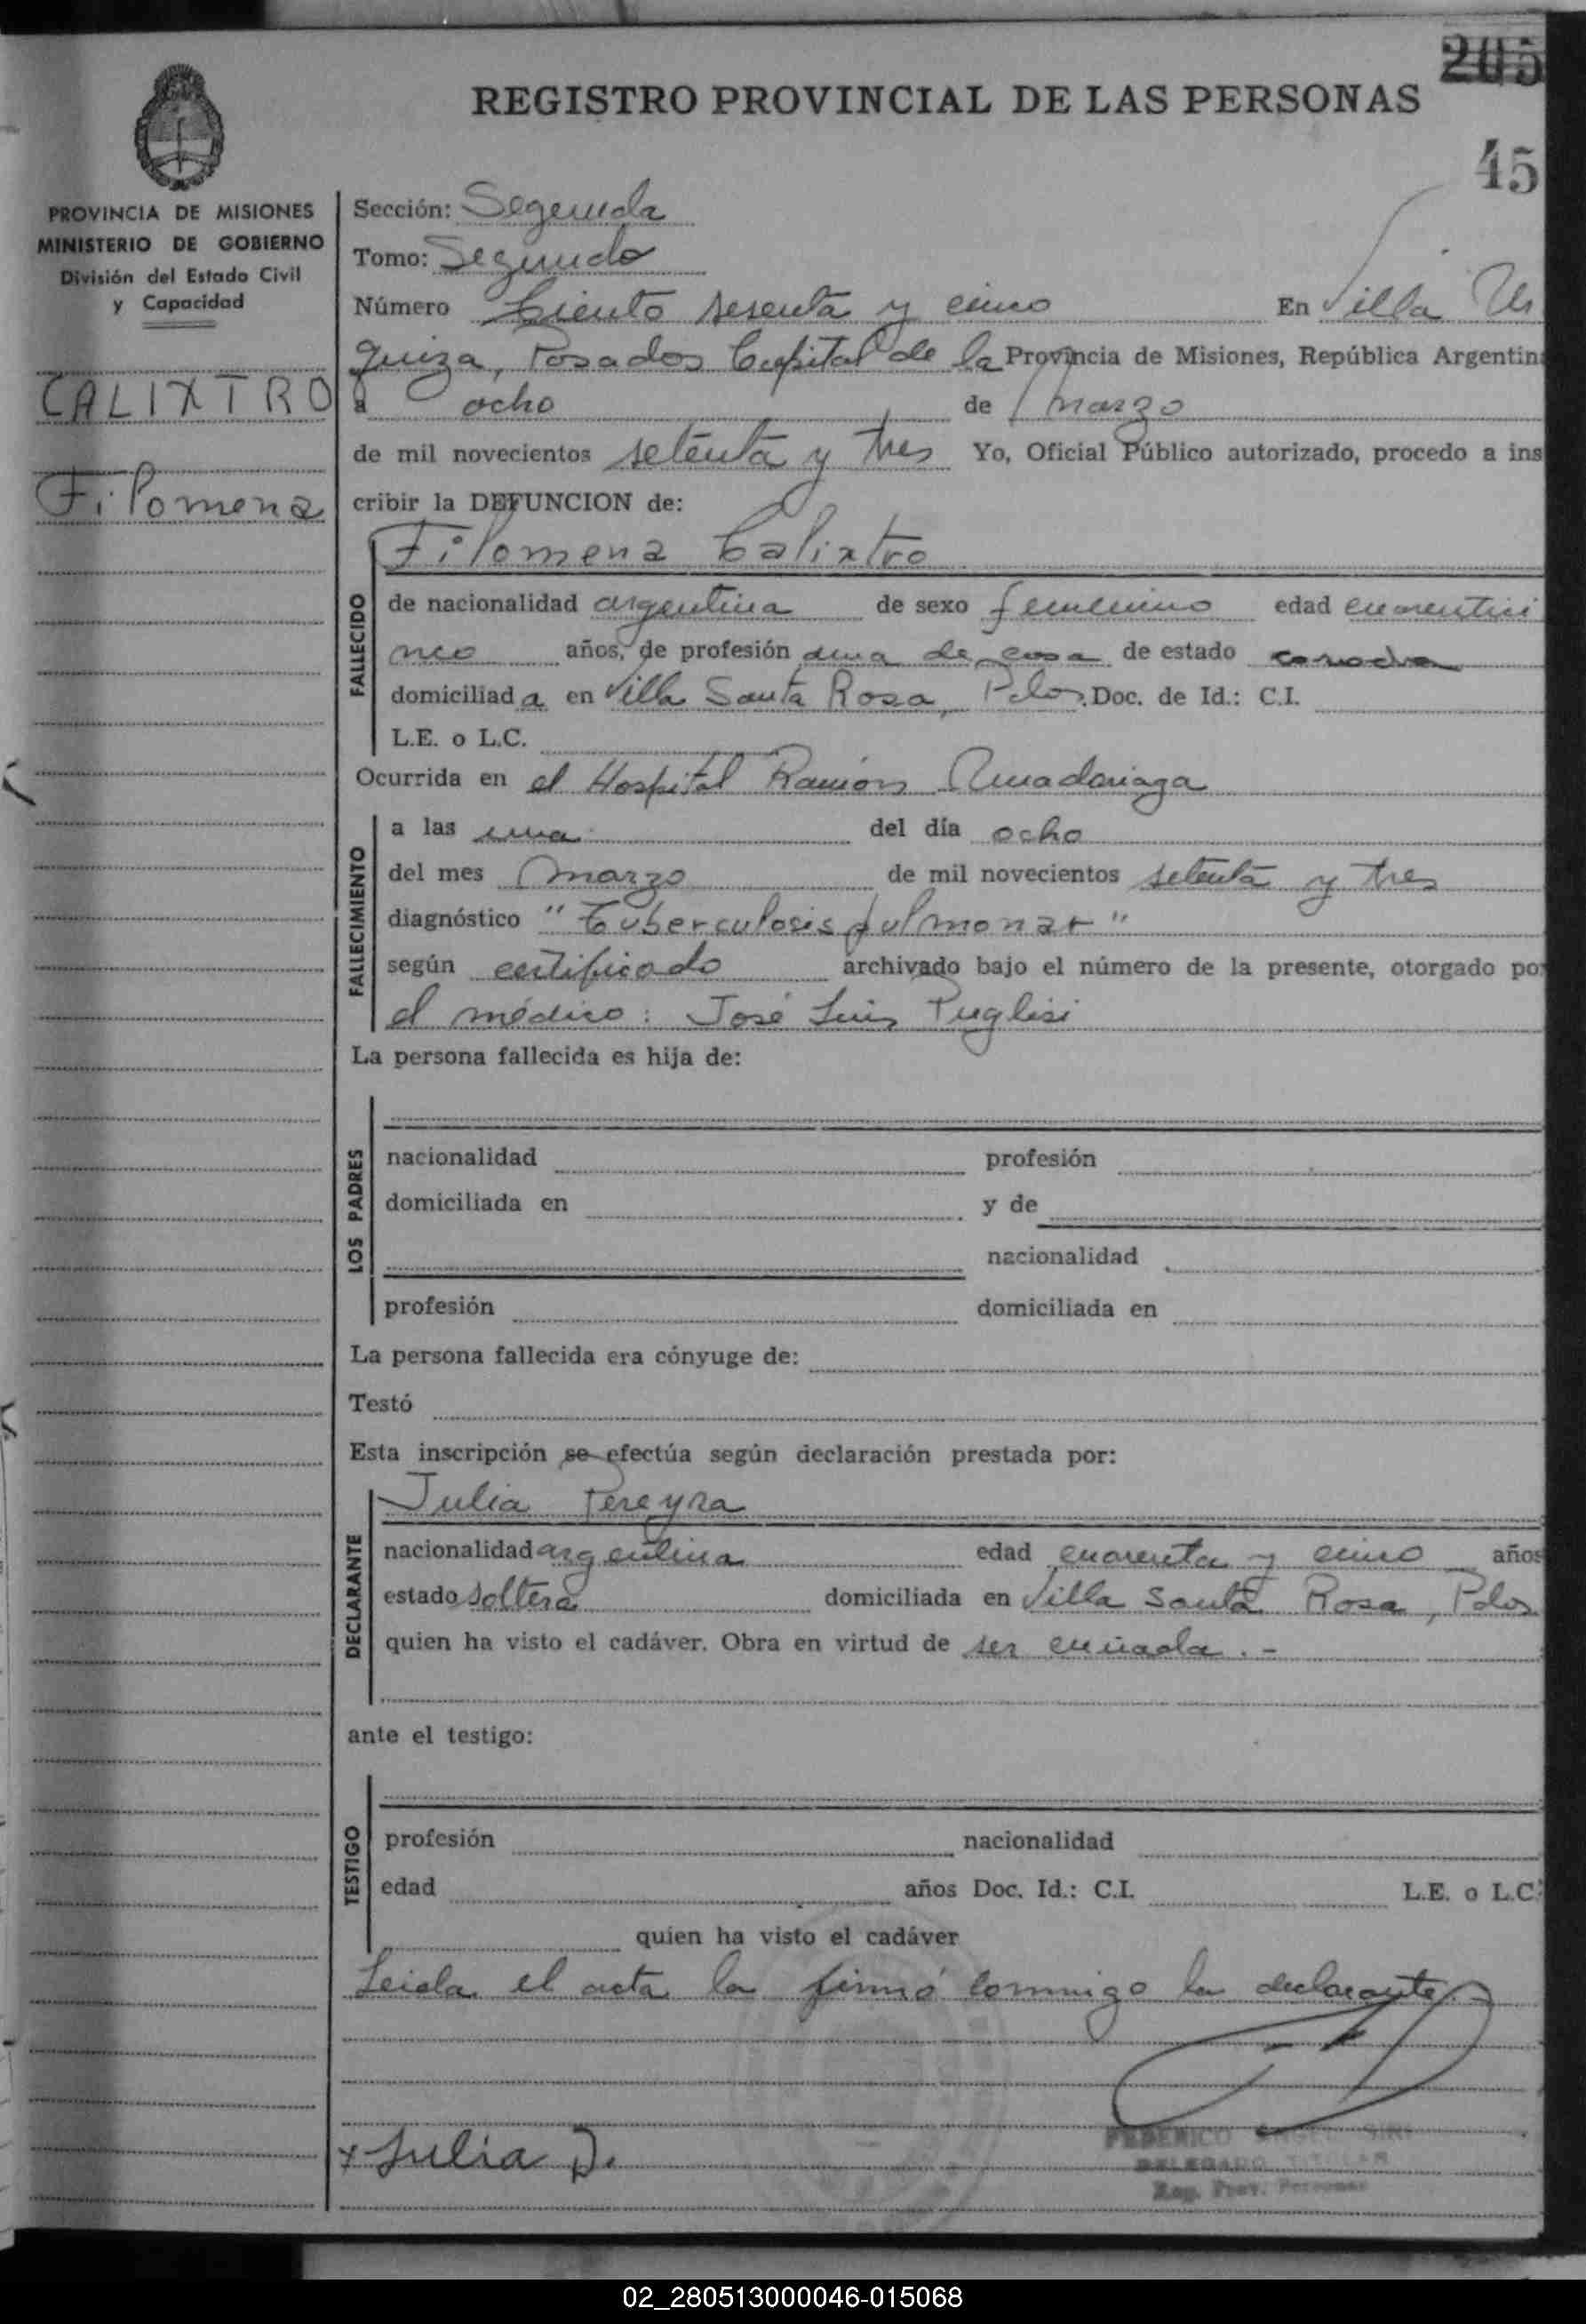 205
REGISTRO PROVINCIAL DE LAS PERSONAS
45
PROVINCIA DE MISIONES
MINISTERIO DE GOBIERNO
División del Estado Civil
y Capacidad
CALIXTRO
Filomena
Sección: Segunda
Tomo: Segundo
Número Ciento sesenta y cinco En Villa Ur
quiza, Posadas Capital de la Provincia de Misiones, República Argentin
a ocho de marzo
de mil novecientos setenta y tres Yo, Oficial Público autorizado, procedo a ins
cribir la DEFUNCION de:
Filomena Calixtro
FALLECIDO
de nacionalidad argentina de sexo femenino edad cuarentici
nco años, de profesión ama de casa de estado casada
domiciliada en Villa Santa Rosa, Pdas. Doc. de Id.: C.I.
L.E. o L.C.
Ocurrida en el Hospital Ramón Madariaga
FALLECIMIENTO
a las una del día ocho
del mes marzo de mil novecientos setenta y tres
diagnóstico "Tuberculosis pulmonar"
según certificado archivado bajo el número de la presente, otorgado por
el médico: José Luis Puglisi
La persona fallecida es hija de:
LOS PADRES
nacionalidad profesión
domiciliada en y de
nacionalidad
profesión domiciliada en
La persona fallecida era cónyuge de:
Testó
Esta inscripción se efectúa según declaración prestada por:
DECLARANTE
Julia Pereyra
nacionalidad argentina edad cuarenta y cinco años
estado soltera domiciliada en Villa Santa Rosa, Pdas
quien ha visto el cadáver. Obra en virtud de ser cuñada.-
ante el testigo:
TESTIGO
profesión nacionalidad
edad años Doc. Id.: C.I. L.E. o L.C.
quien ha visto el cadáver
Leida el acta la firmó conmigo la declarante.
x Julia P.
FEDERICO
DELEGADO TITULAR
Reg. Prov. Personas
02_280513000046-015068